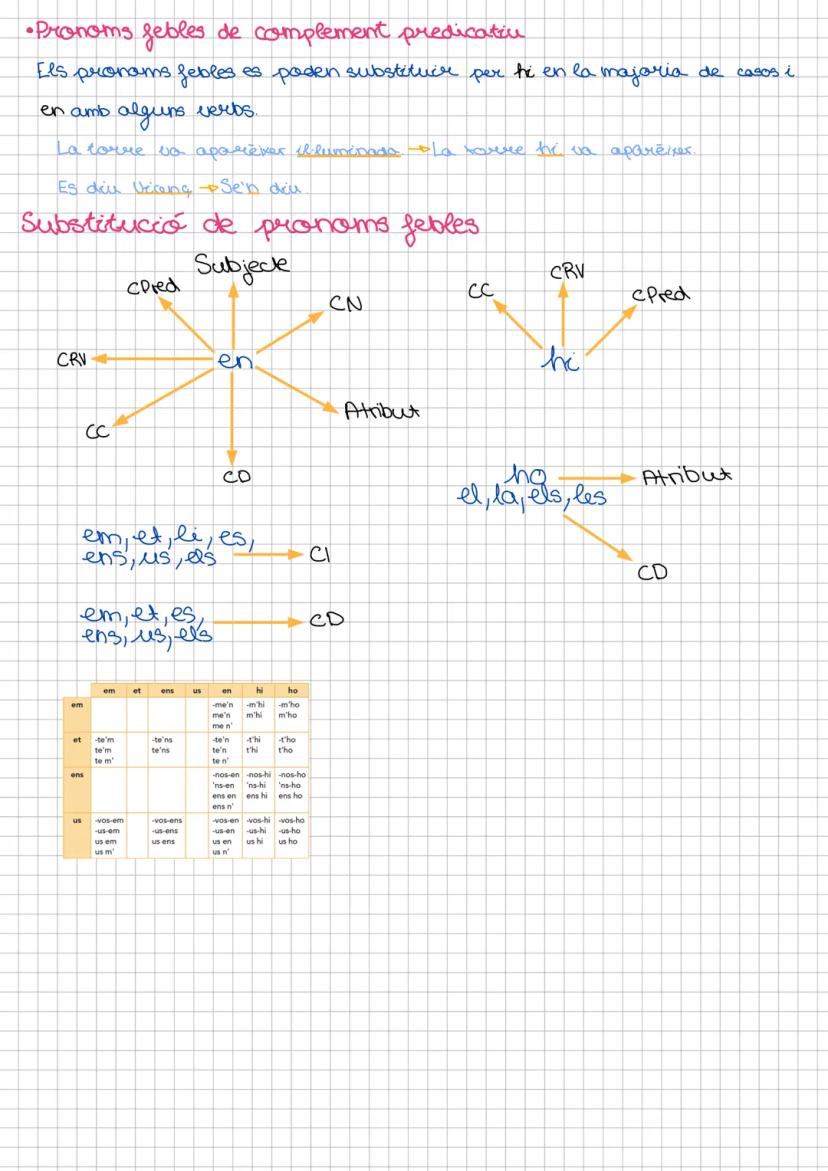 •Pronoms febles de complement predicatiu
Els pronoms febles es poden substituir per hi en la majoria de casos i
en amb alguns verbs.
La torre va aparèixer il·luminada. → La torre hi va aparèixer.
Es diu Vicenç → Se'n diu
Substitució de pronoms febles
Subjecte
CPred
CN
CRV
en
Atribut
CC
CD
CRV
CC
CPred
hi
ho
Atribut
el, la, els, les
CD
em, et, li, es,
ens, us, els
CI
em, et, es,
ens, us, els
CD
em et ens us en hi ho
em -me'n -m'hi -m'ho
me'n m'hi m'ho
me n'
et -te'm -te'ns -te'n -t'hi -t'ho
te'm te'ns te'n t'hi t'ho
te m' te n'
ens -nos-en -nos-hi -nos-ho
'ns-en 'ns-hi 'ns-ho
ens en ens hi ens ho
ens n'
us -vos-em -vos-ens -vos-en -vos-hi -vos-ho
-us-em -us-ens -us-en -us-hi -us-ho
us em us ens us en us hi us ho
us m' us n'